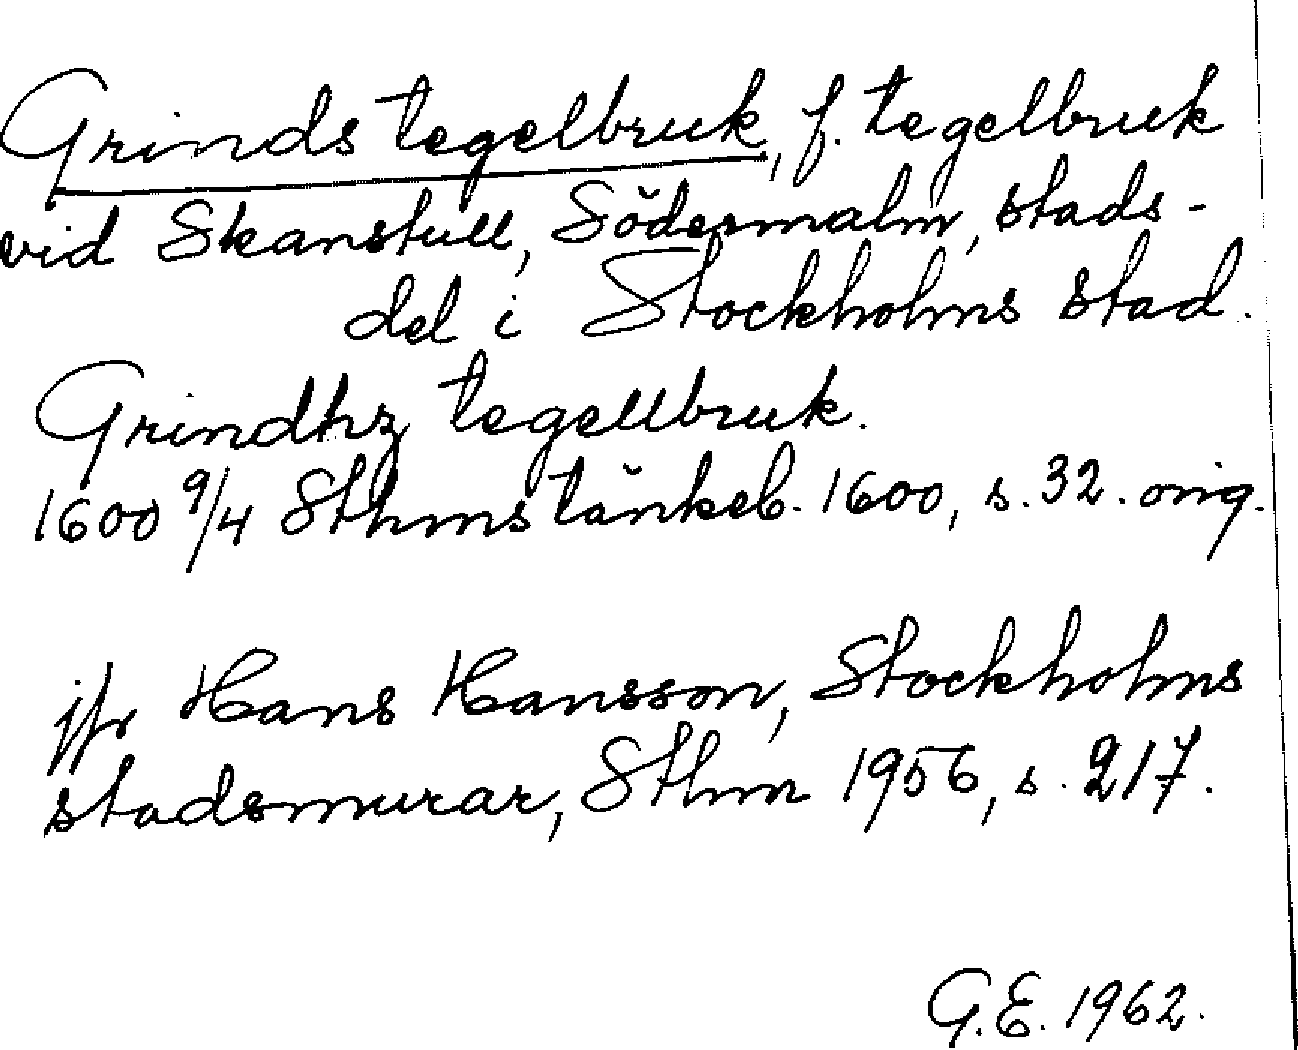 Grinds tegelbruk, f. tegelbruk
vid Skanstull, Södermalm, stads-
del i Stockholms stad.
Grindhz tegellbruk.
1600 9/4 Sthms tänkeb. 1600, s. 32. orig.
jfr Hans Hansson, Stockholms
stadsmurar, Sthm 1956, s. 217.
G.E. 1962.